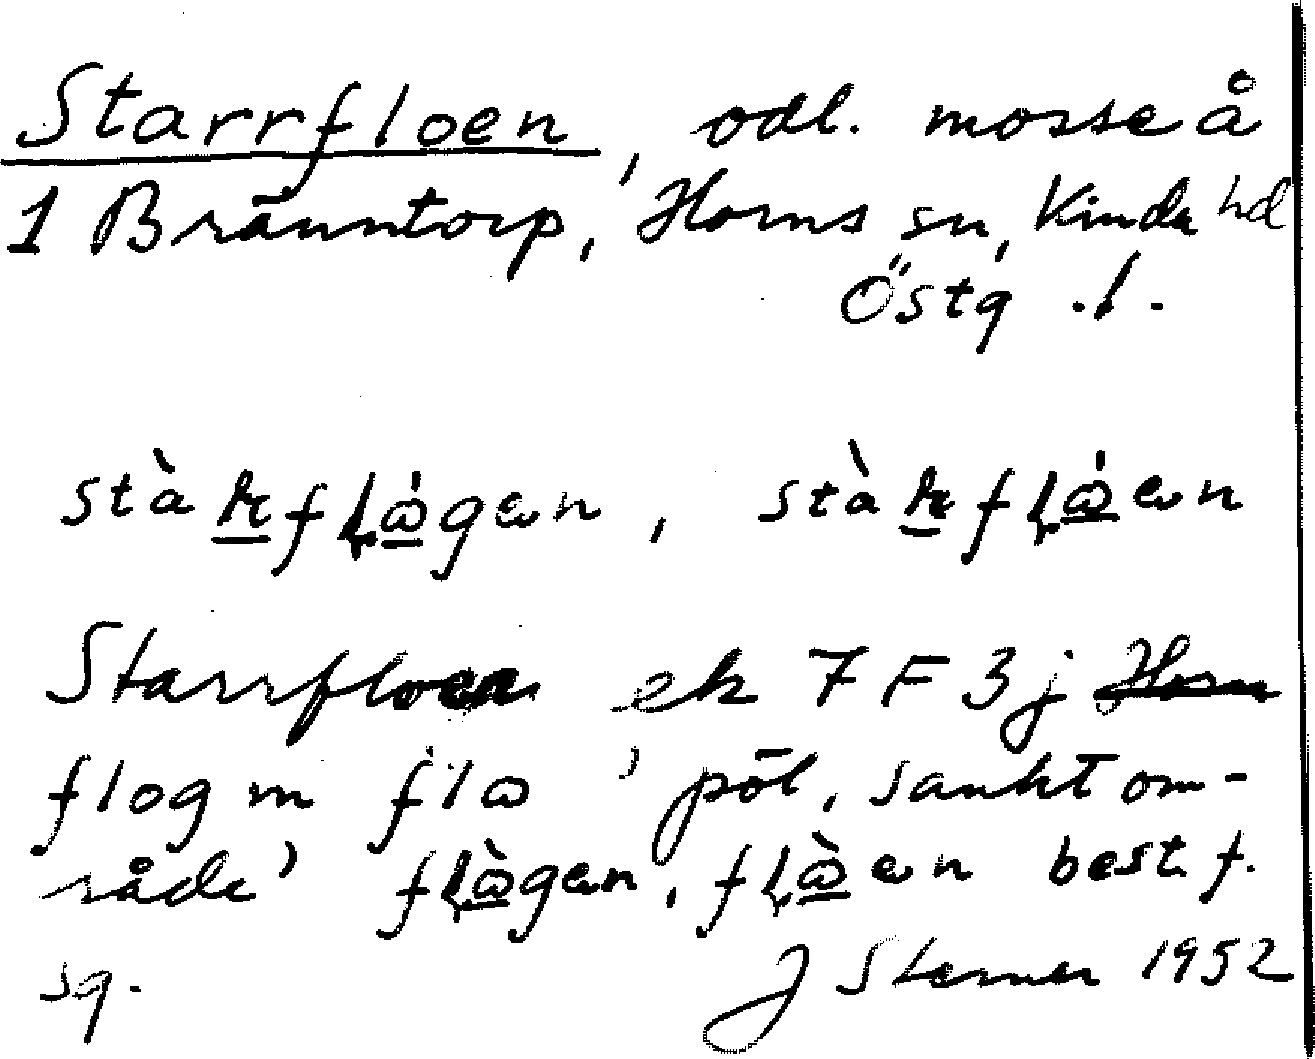 Starrfloen, odl. mosse å
1 Bränntorp, Horns sn, Kinda hd
Östg .l.
stàrflågen, stàrflåen
Starrfloen ek 7 F 3j Horn
flog m flo ' pöl, sankt om-
råde' flògen, flòen best f.
sg. J Sterner 1952